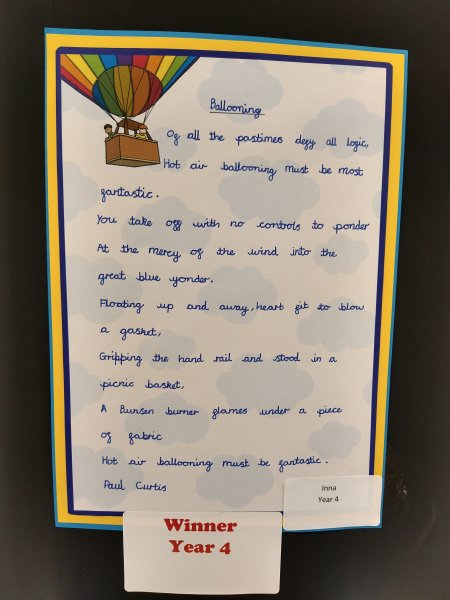 Ballooning
Of all the pastimes defy all logic,
Hot air ballooning must be most
fantastic.
You take off with no controls to ponder
At the mercy of the wind into the
great blue yonder.
Floating up and away, heart fit to blow
a gasket,
Gripping the hand rail and stood in a
picnic basket,
A Bunsen burner flames under a piece
of fabric
Hot air ballooning must be fantastic.
Paul Curtis
Inna
Year 4
Winner
Year 4